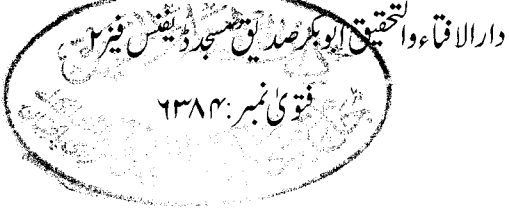 دارالافتاء والتحقیق ابوبکر صدیق مسجد ڈیفنس فیز ۲
فتویٰ نمبر: ۶۳۸۴